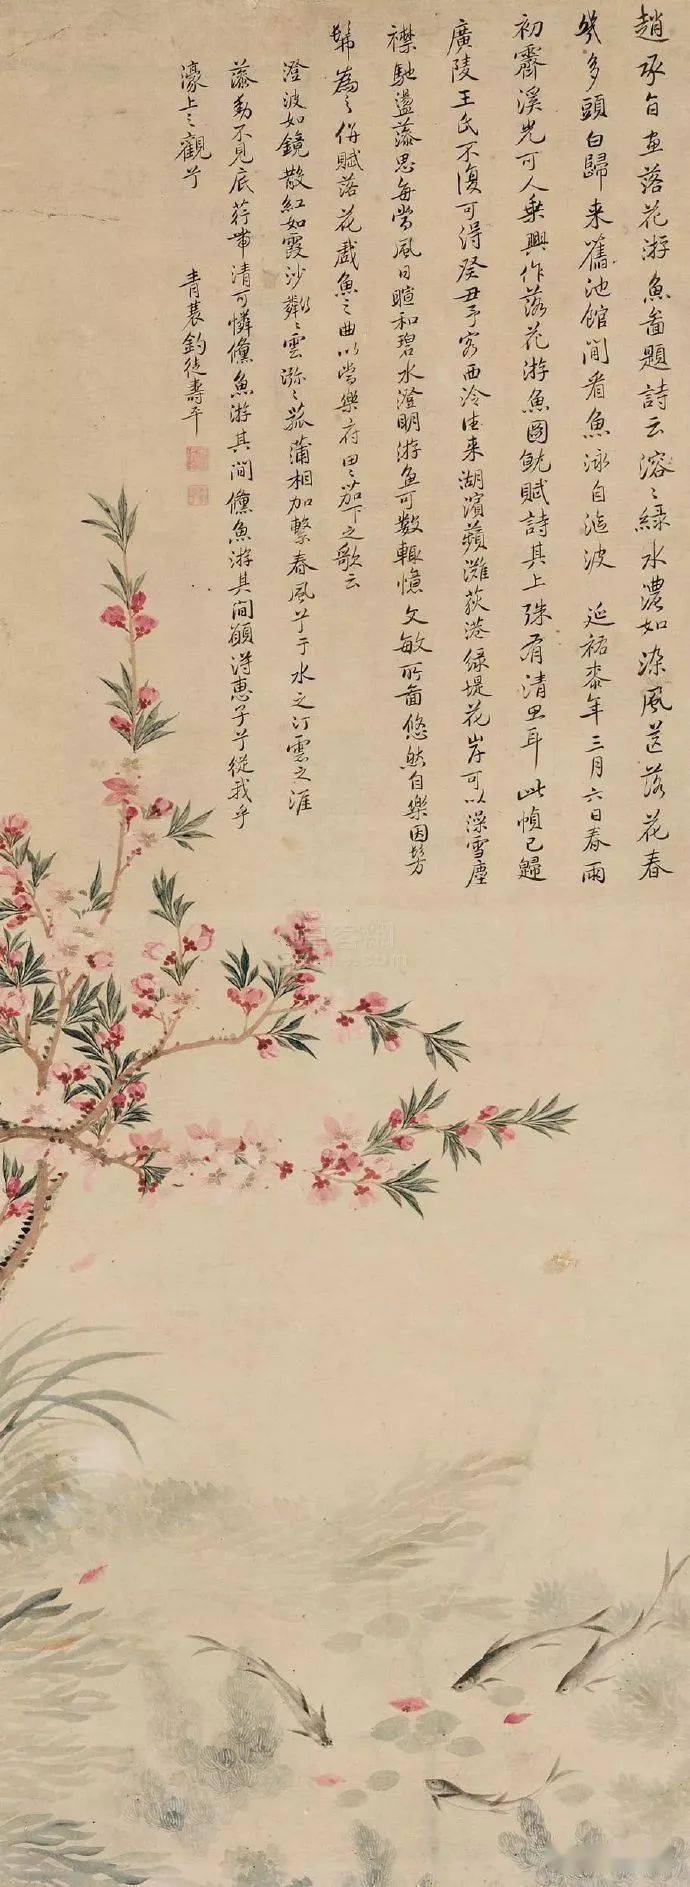 趙承旨畫落花游魚圖題詩云溶溶綠水濃如染風送落花春
幾多頭白歸来舊池館閒看魚泳自泝波 延祐柒年三月六日春雨
初霽溪光可人乗興作落花游魚圖就賦詩其上殊有清思耳 此幀已歸
廣陵王氏不復可得癸丑予客西泠往来湖濱蘋灘荻港緑堤花岸可以澡雪塵
襟馳盪藻思每當風日暄和碧水澄明游魚可數輒憶文敏所啚悠然自樂因髣
髴為之併賦落花戲魚之曲以當樂府田田茄下之歌云
澄波如鏡散紅如霞沙鄰鄰雲瀰瀰菰蒲相加繫春風兮于水之汀雲之涯
藻動不見底荇帶清可憐鯈魚游其間鯈魚游其間願得惠子兮從我乎
濠上之觀兮
青蓑釣徒壽平